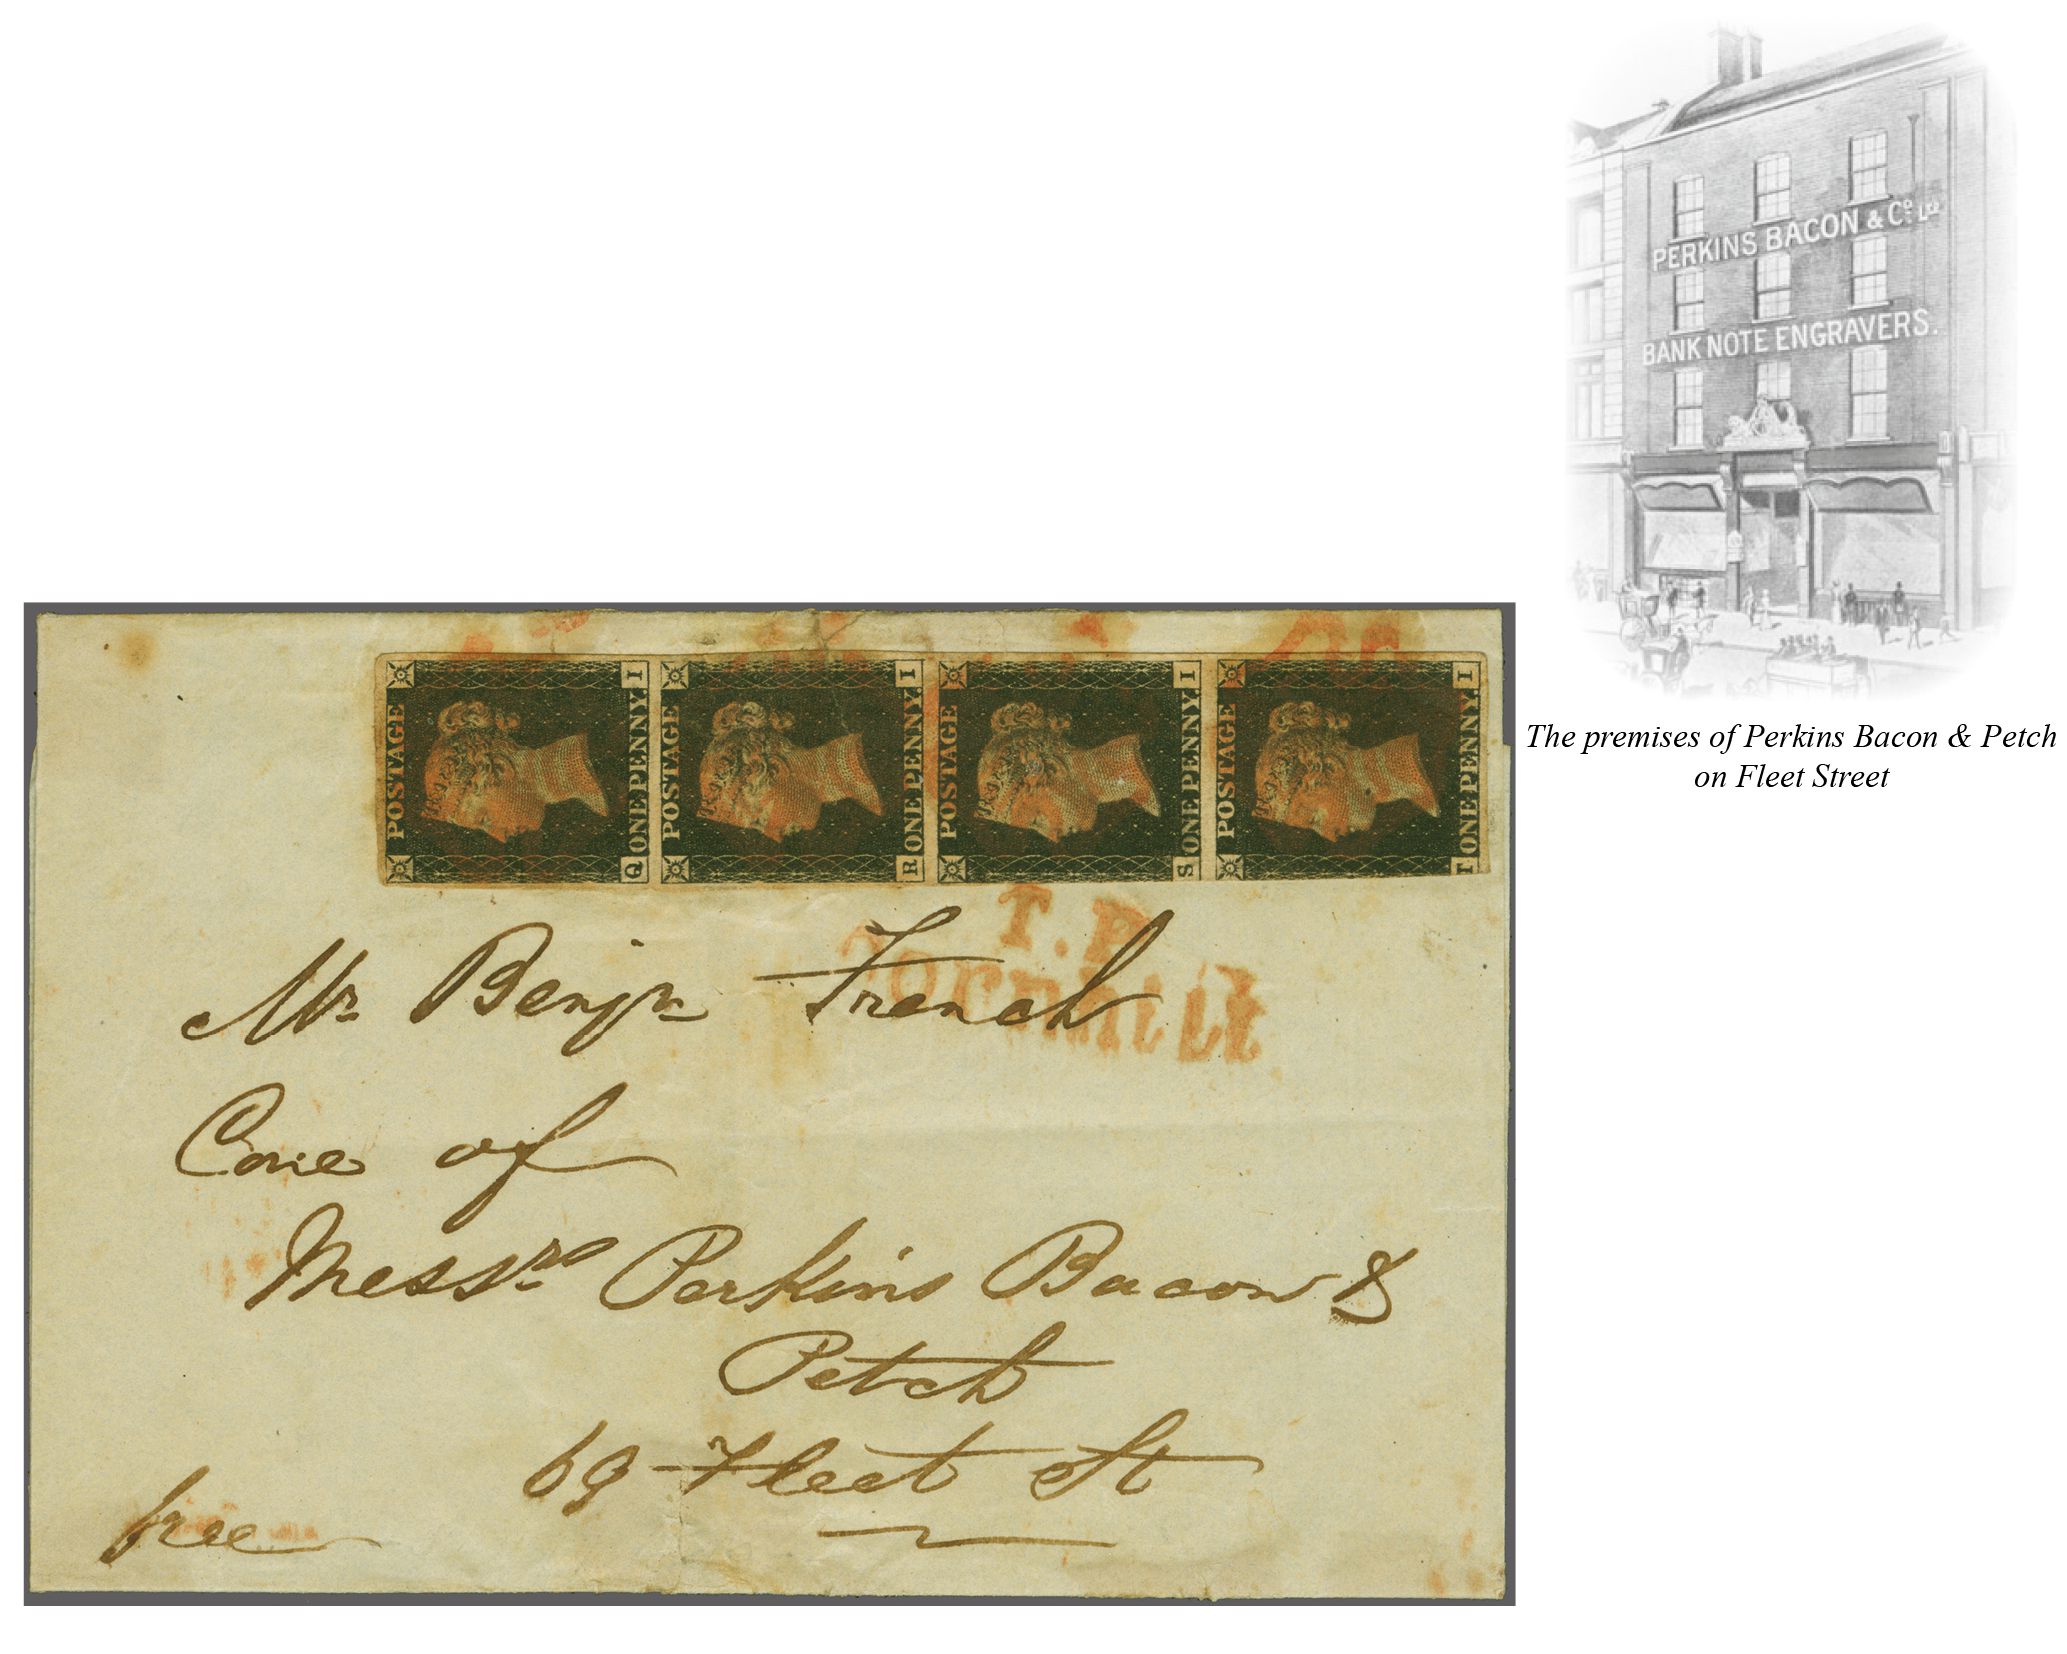 PERKINS BACON & Cº. LTD
BANK NOTE ENGRAVERS.
The premises of Perkins Bacon & Petch
on Fleet Street
POSTAGE
ONE PENNY.
Q I
POSTAGE
ONE PENNY.
R I
POSTAGE
ONE PENNY.
S I
POSTAGE
ONE PENNY.
T I
T.P
Cornhill
Mr. Benjn. French
Care of
Messrs Perkins Bacon &
Petch
69 Fleet St
free